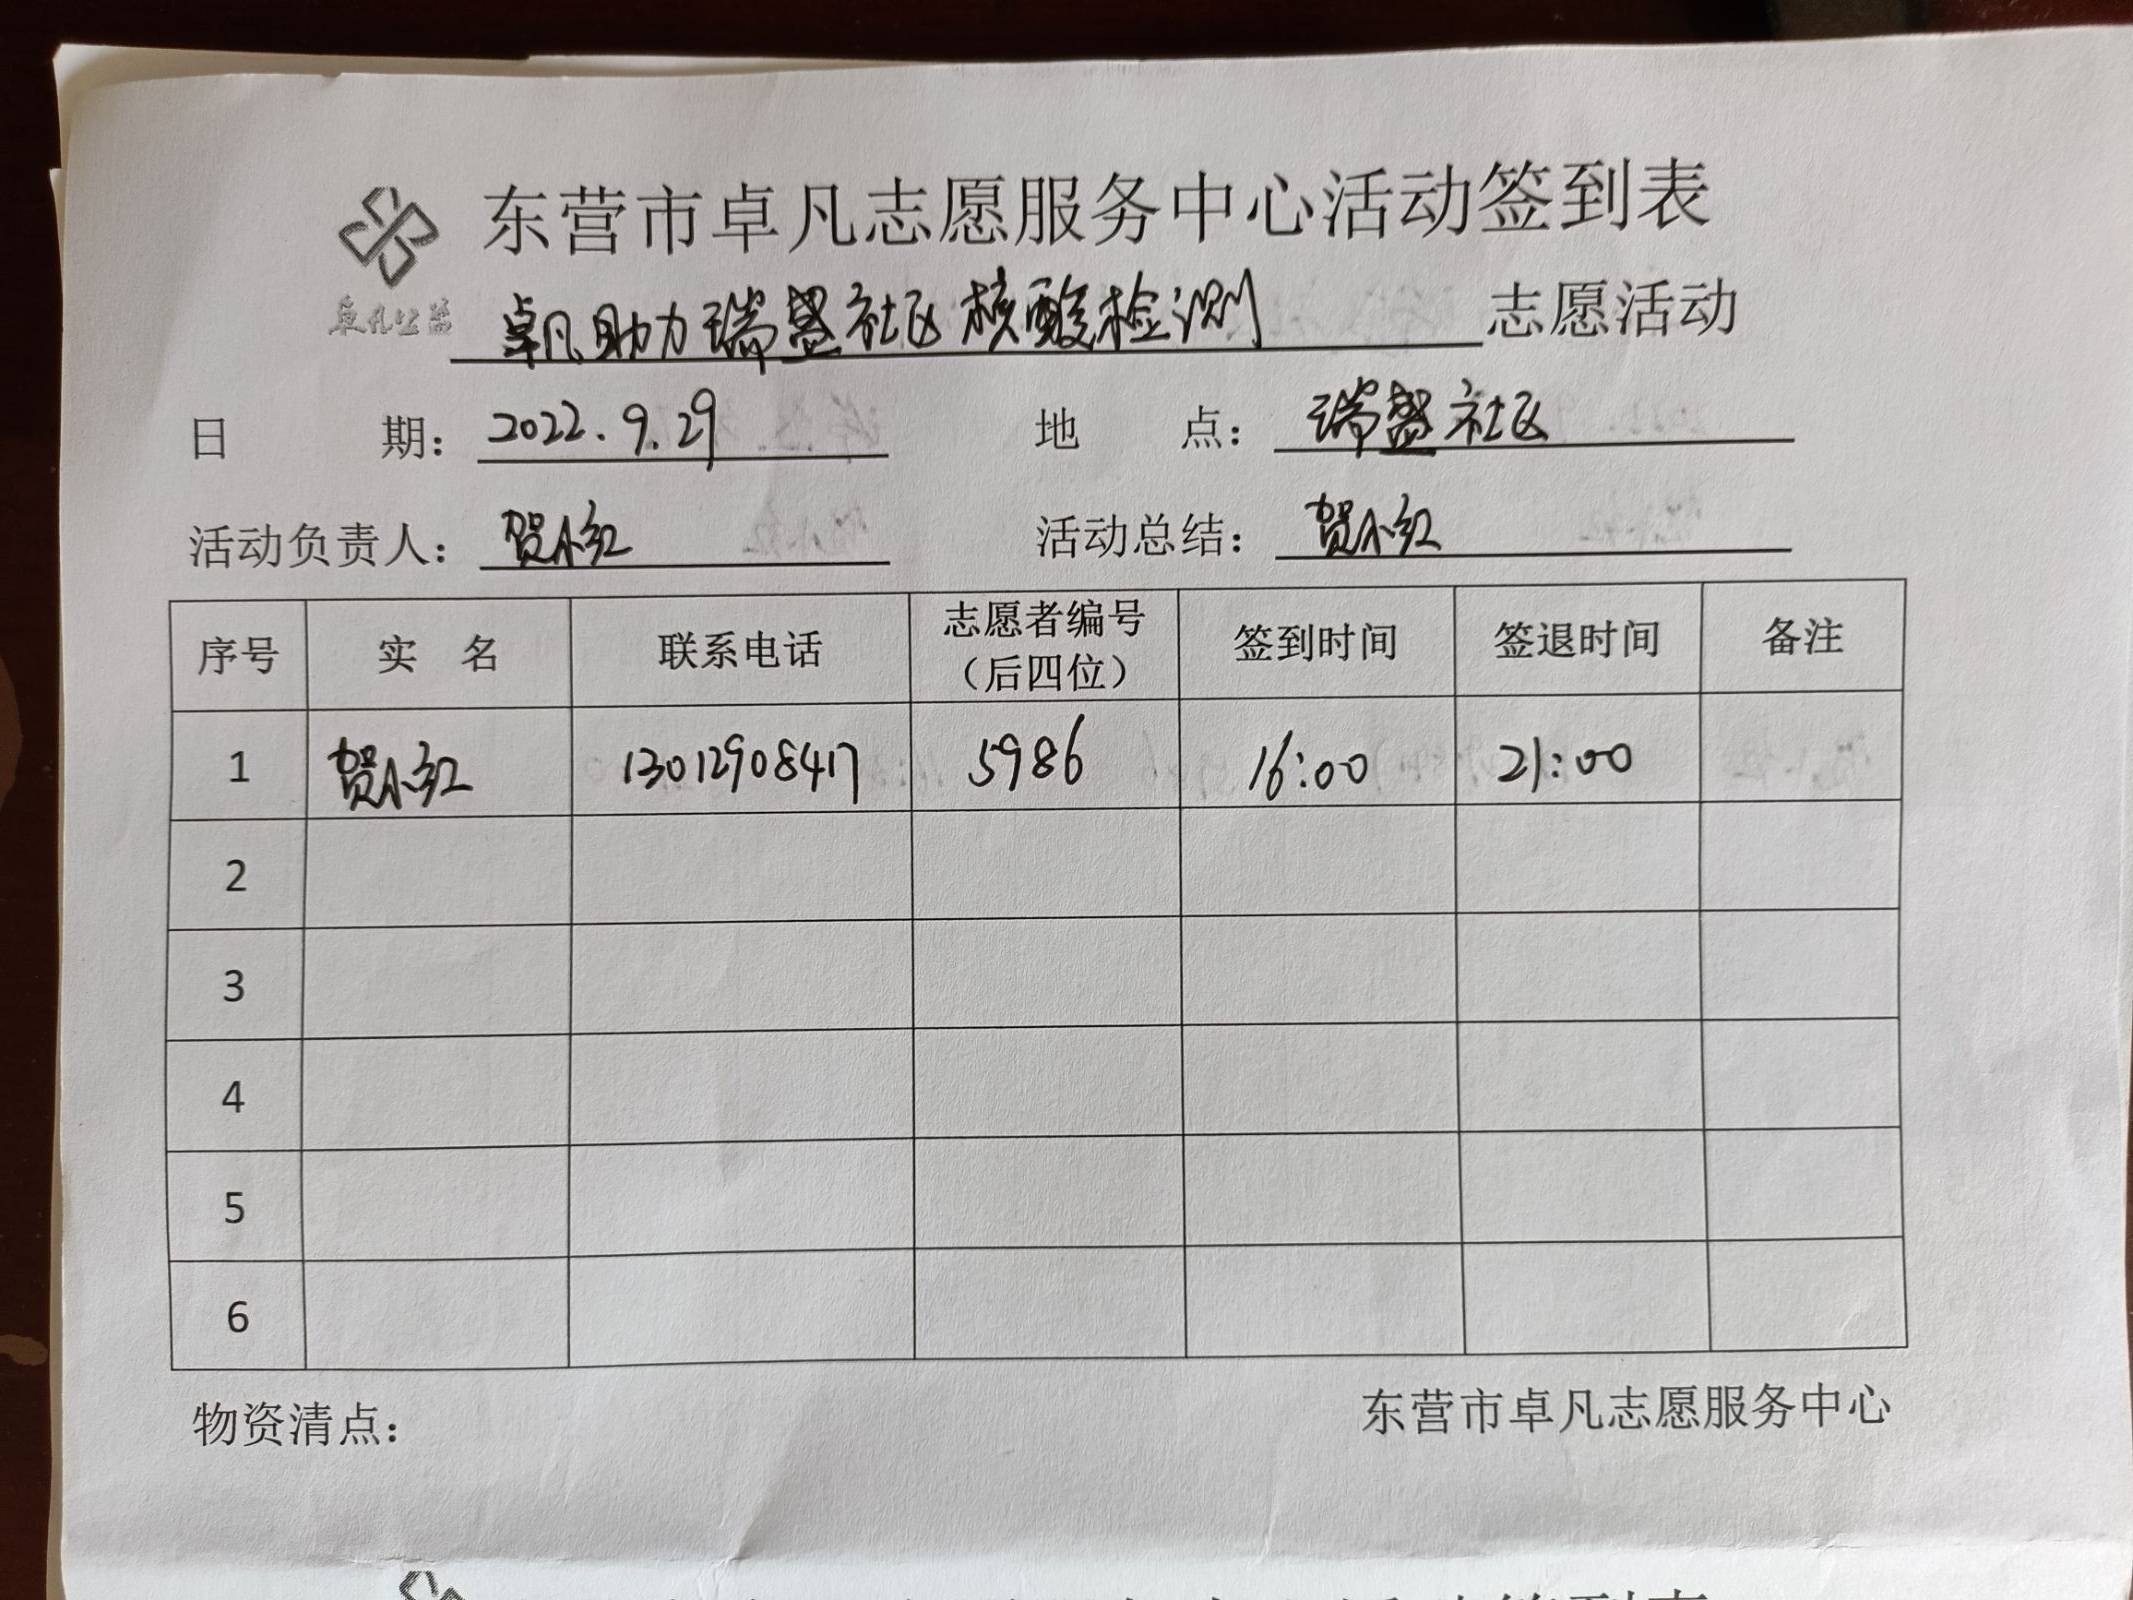 东营市卓凡志愿服务中心活动签到表
卓凡公益
卓凡助力瑞盛社区核酸检测 志愿活动
日 期: 2022.9.29 地 点: 瑞盛社区
活动负责人: 贺小红 活动总结: 贺小红
序号 实 名 联系电话 志愿者编号(后四位) 签到时间 签退时间 备注
1 贺小红 13012908417 5986 16:00 21:00
2
3
4
5
6
物资清点: 东营市卓凡志愿服务中心